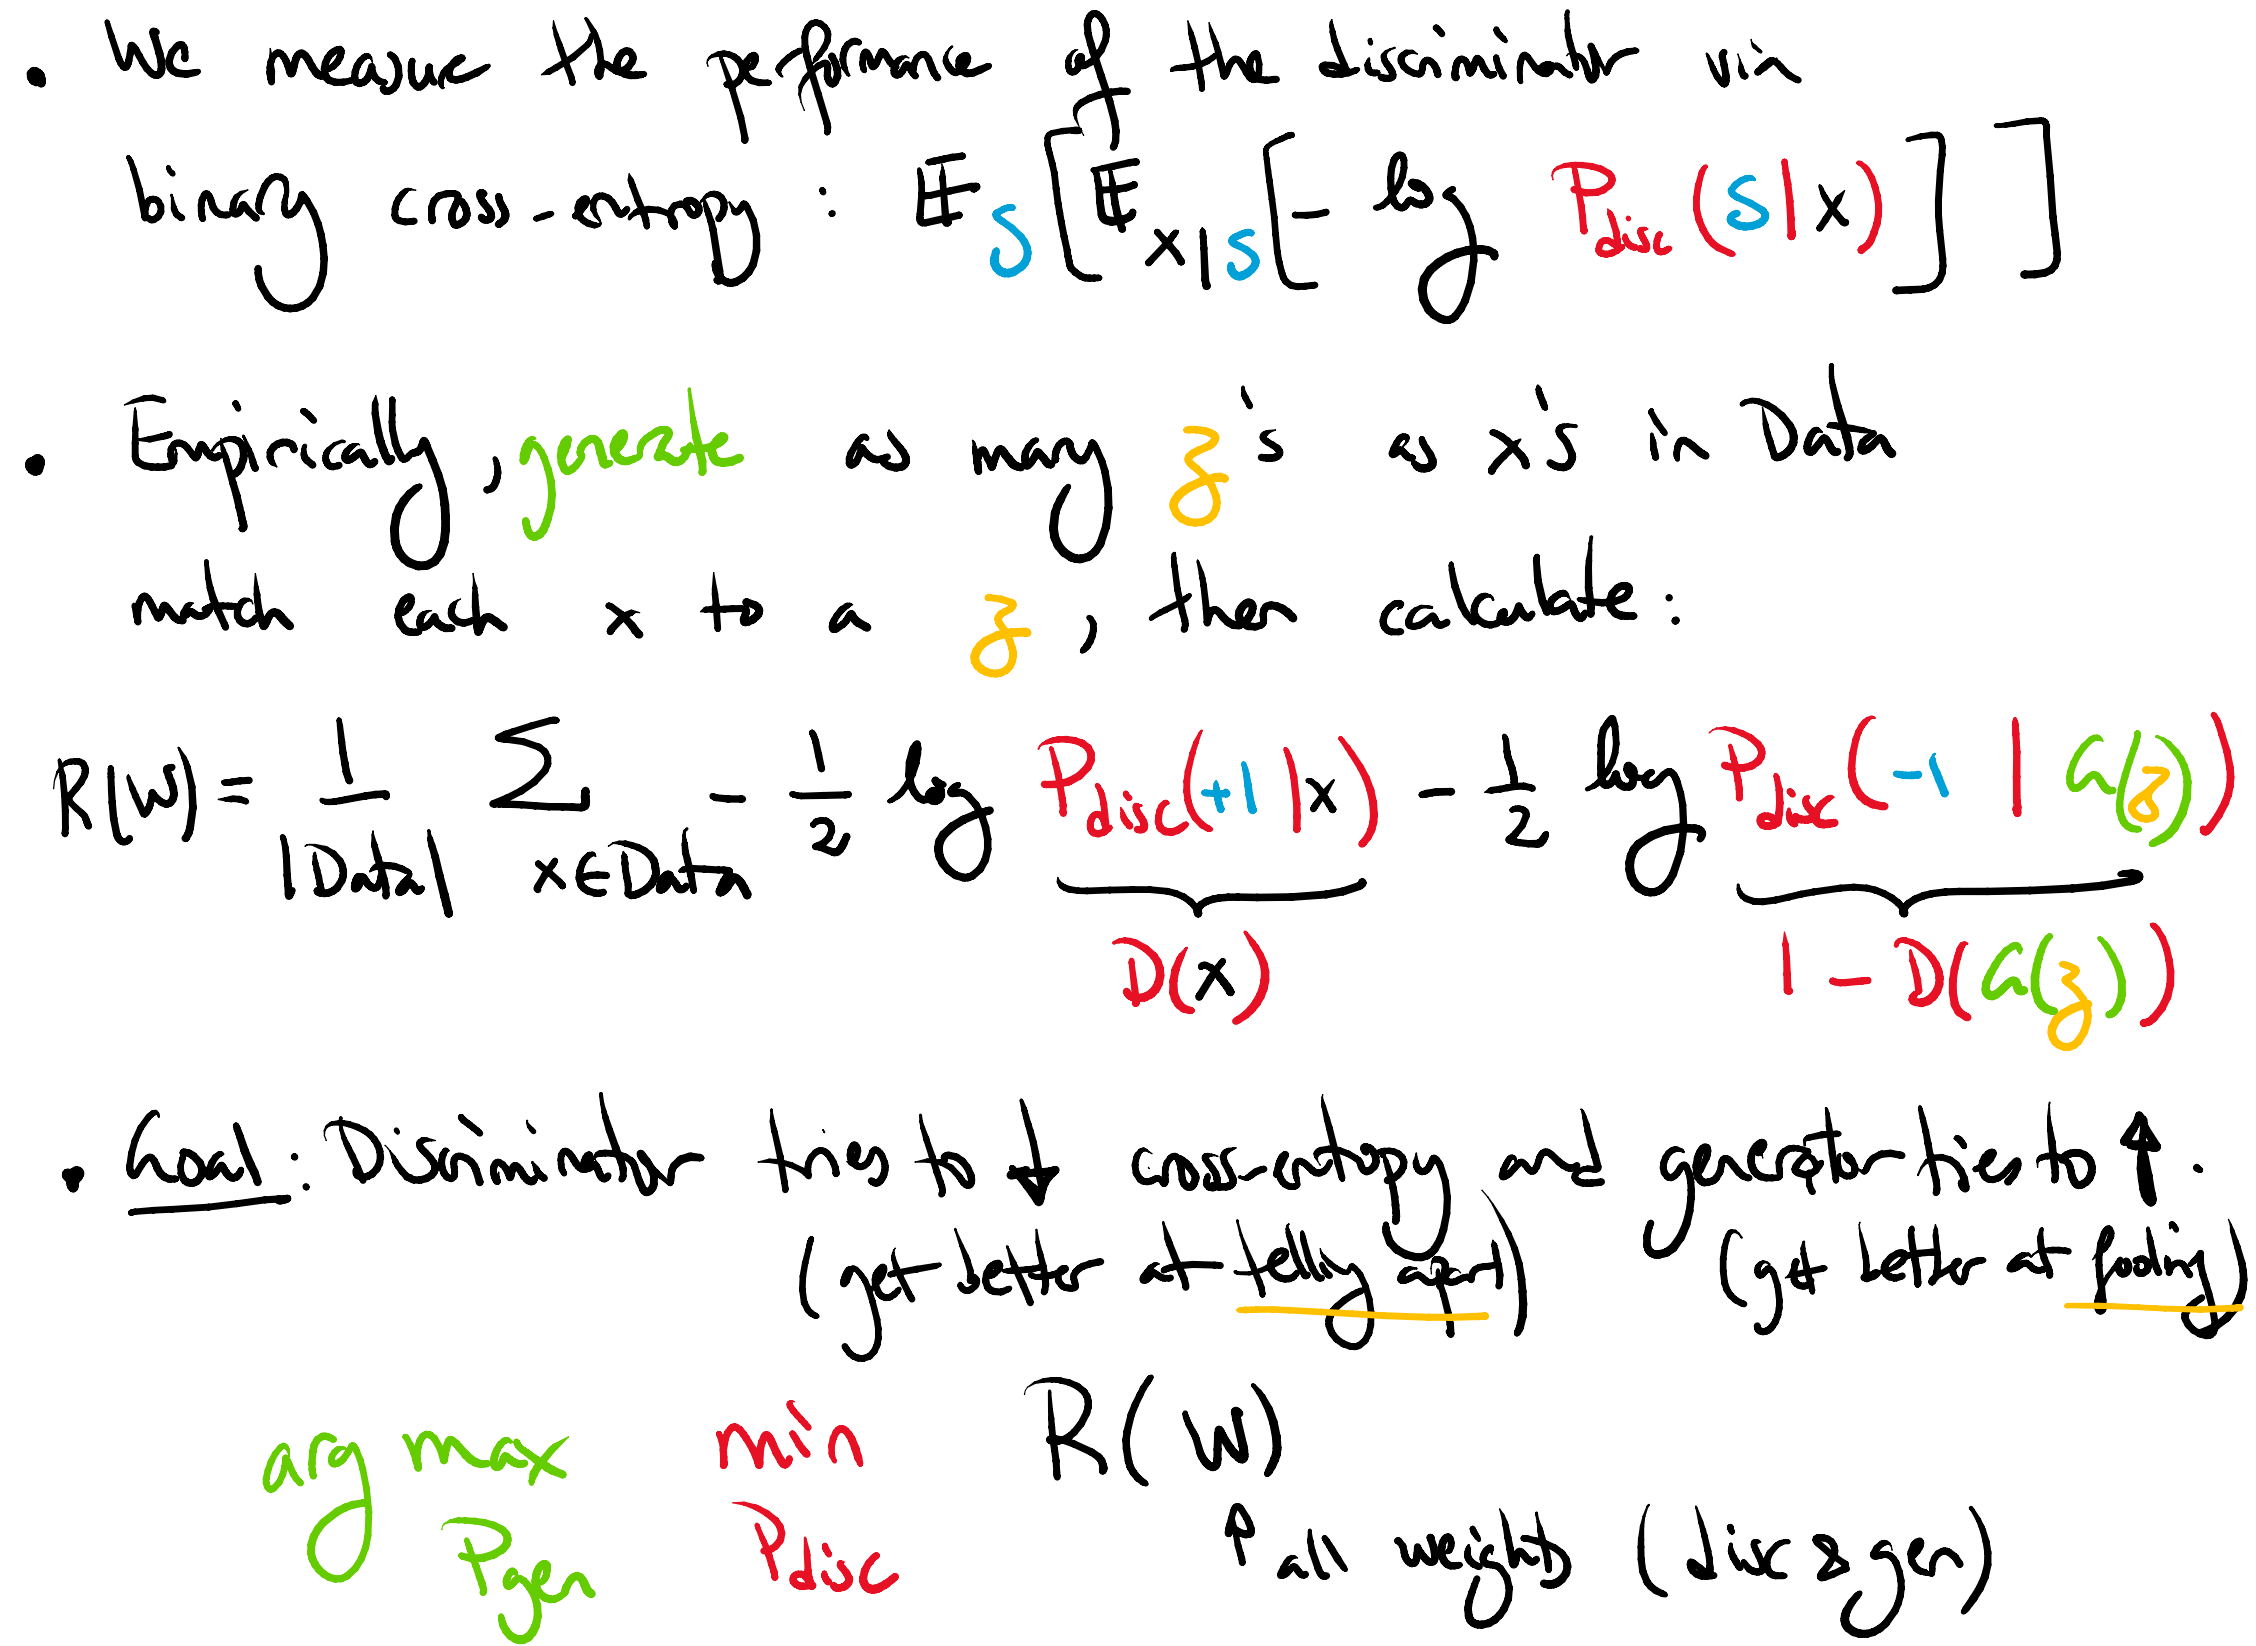 • We measure the performance of the discriminator via
binary cross-entropy : 𝔼_S [ 𝔼_{x|S} [ - log P_disc (S|x) ] ]
• Empirically, generate as many z's as x's in Data
match each x to a z, then calculate:
R(W) = 1/|Data| Σ_{x∈Data} - 1/2 log P_disc(+1|x) - 1/2 log P_disc(-1 | G(z))
D(x) 1 - D(G(z))
• Goal: Discriminator tries to ↓ cross-entropy and generator tries to ↑.
(get better at telling apart) (get better at fooling)
arg max P_gen min P_disc R(W)
↑ all weights (disc & gen)